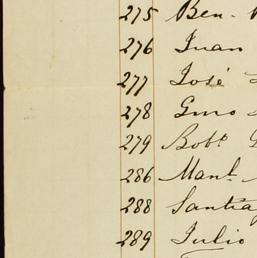 275 Ben.
276 Juan
277 José
278 Gmo
279 Robt
286 Manl
288 Santia
289 Julio